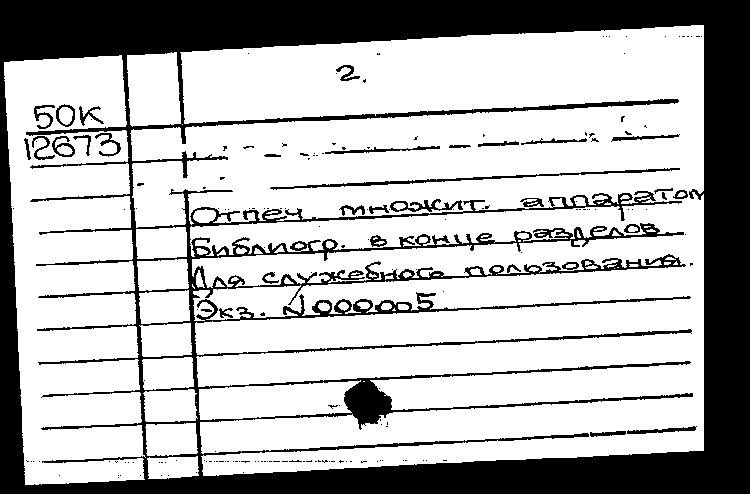 2.
50К
12673
Отпеч. множит. аппаратом
Библиогр. в конце разделов.
Для служебного пользования.
Экз. N000005